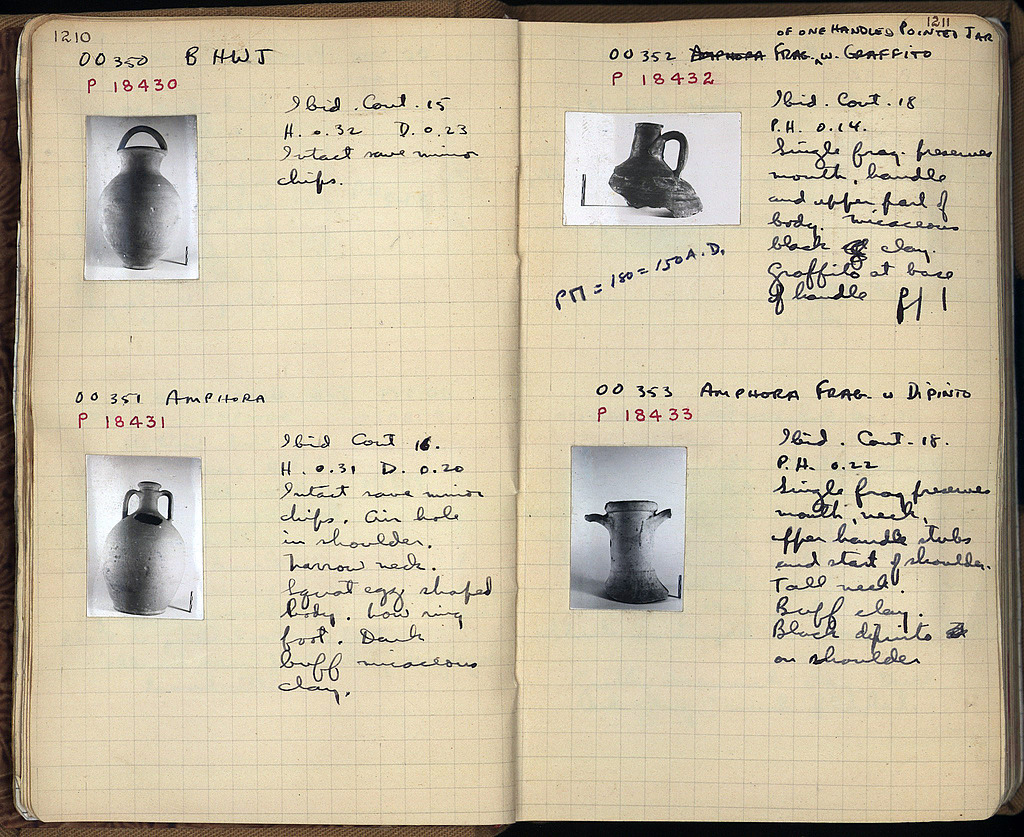 1210
OO 350 B HWJ
P 18430
Ibid. Cont. 15
H. 0.32 D. 0.23
Intact save minor
chips.
OO 351 AMPHORA
P 18431
Ibid Cont 16.
H. 0.31 D. 0.20
Intact save minor
chips. Air hole
in shoulder.
Narrow neck.
Squat egg shaped
body. Low ring
foot. Dark
buff micaceous
clay.
1211
OF ONE HANDLED POINTED JAR
OO 352 AMPHORA FRAG. w. GRAFFITO
P 18432
Ibid. Cont. 18
P.H. 0.14.
Single frag. preserves
mouth, handle
and upper part of
body. Micaceous
black clay.
Graffito at base
of handle
= 180 = 150 A.D.
OO 353 AMPHORA FRAG w DIPINTO
P 18433
Ibid. Cont. 18.
P.H. 0.22
Single frag preserves
mouth, neck,
upper handle stubs
and start of shoulder.
Tall neck.
Buff clay.
Black dipinto
on shoulder